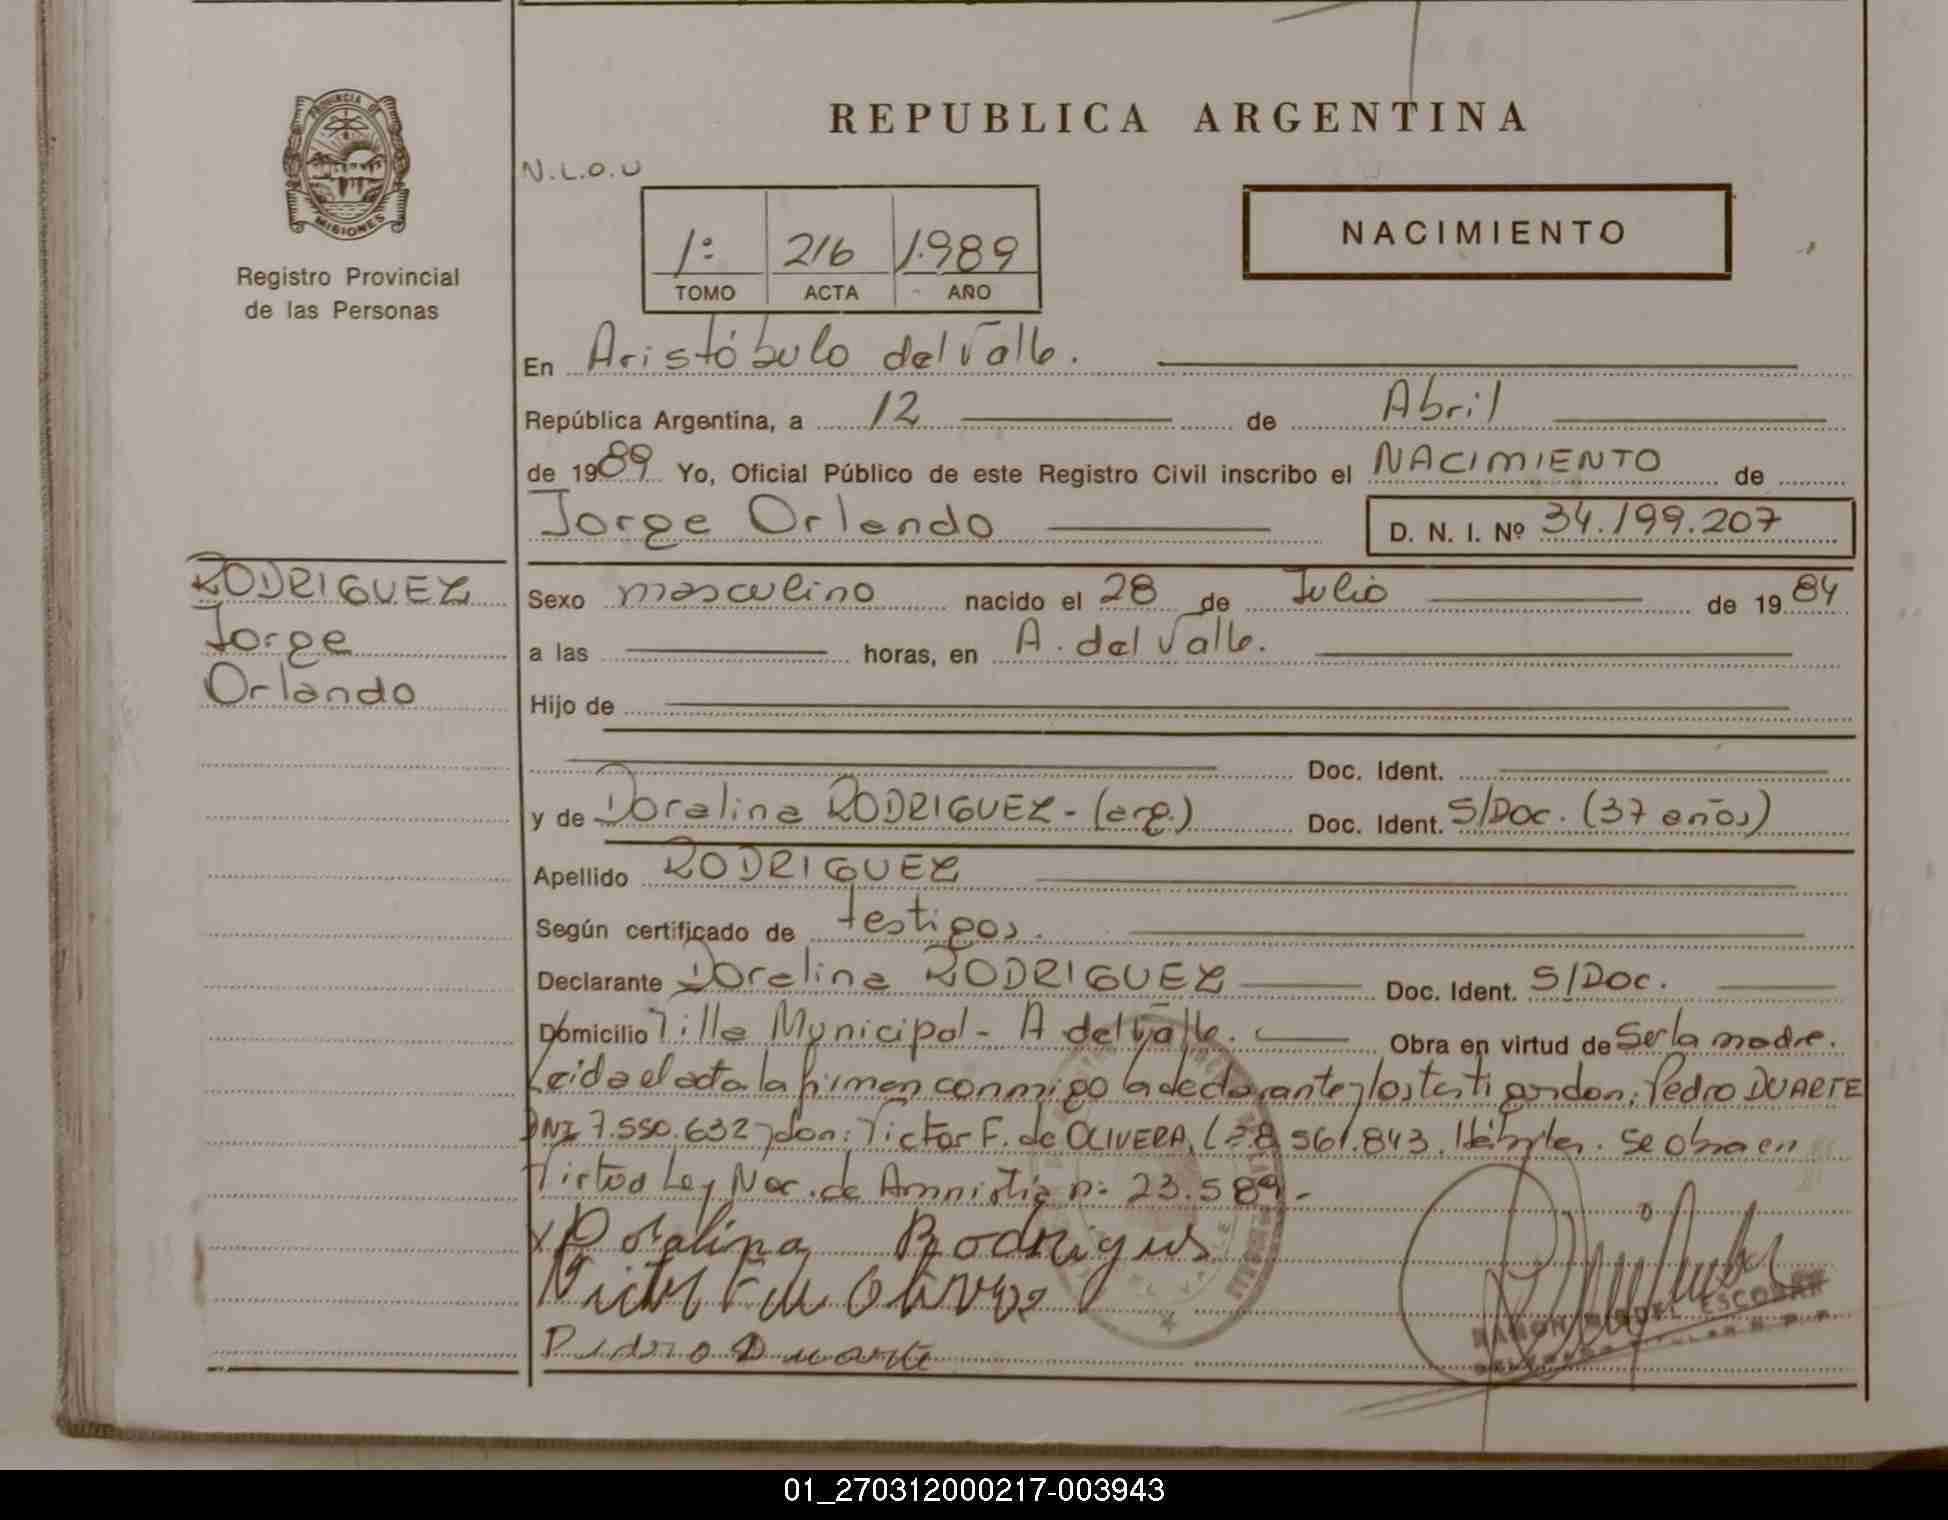 PROVINCIA DE
MISIONES
Registro Provincial
de las Personas
REPUBLICA ARGENTINA
N.L.O.U
1º 216 1.989
TOMO ACTA AÑO
NACIMIENTO
En Aristóbulo del Valle.
República Argentina, a 12 de Abril
de 1989 Yo, Oficial Público de este Registro Civil inscribo el NACIMIENTO de
Jorge Orlando D. N. I. Nº 34.199.207
RODRIGUEZ
Jorge
Orlando
Sexo masculino nacido el 28 de Julio de 1984
a las horas, en A. del Valle.
Hijo de
Doc. Ident.
y de Doralina RODRIGUEZ - (arg.) Doc. Ident. S/Doc. (37 años)
Apellido RODRIGUEZ
Según certificado de testigos.
Declarante Doralina RODRIGUEZ Doc. Ident. S/Doc.
Domicilio Villa Municipal - A del Valle. Obra en virtud de Ser la madre.
Leida el acta la firman conmigo la declarante y los testigos don: Pedro DUARTE
DNI 7.550.632 y don: Victor F. de OLIVERA, 8.561.843. Hábiles. Se obra en
Virtud Ley Nac. de Amnistia nº 23.589.-
x Doralina Rodrigues
Victor F de Olivera
Pedro Duarte
RAMON MIGUEL ESCOBAR
01_270312000217-003943